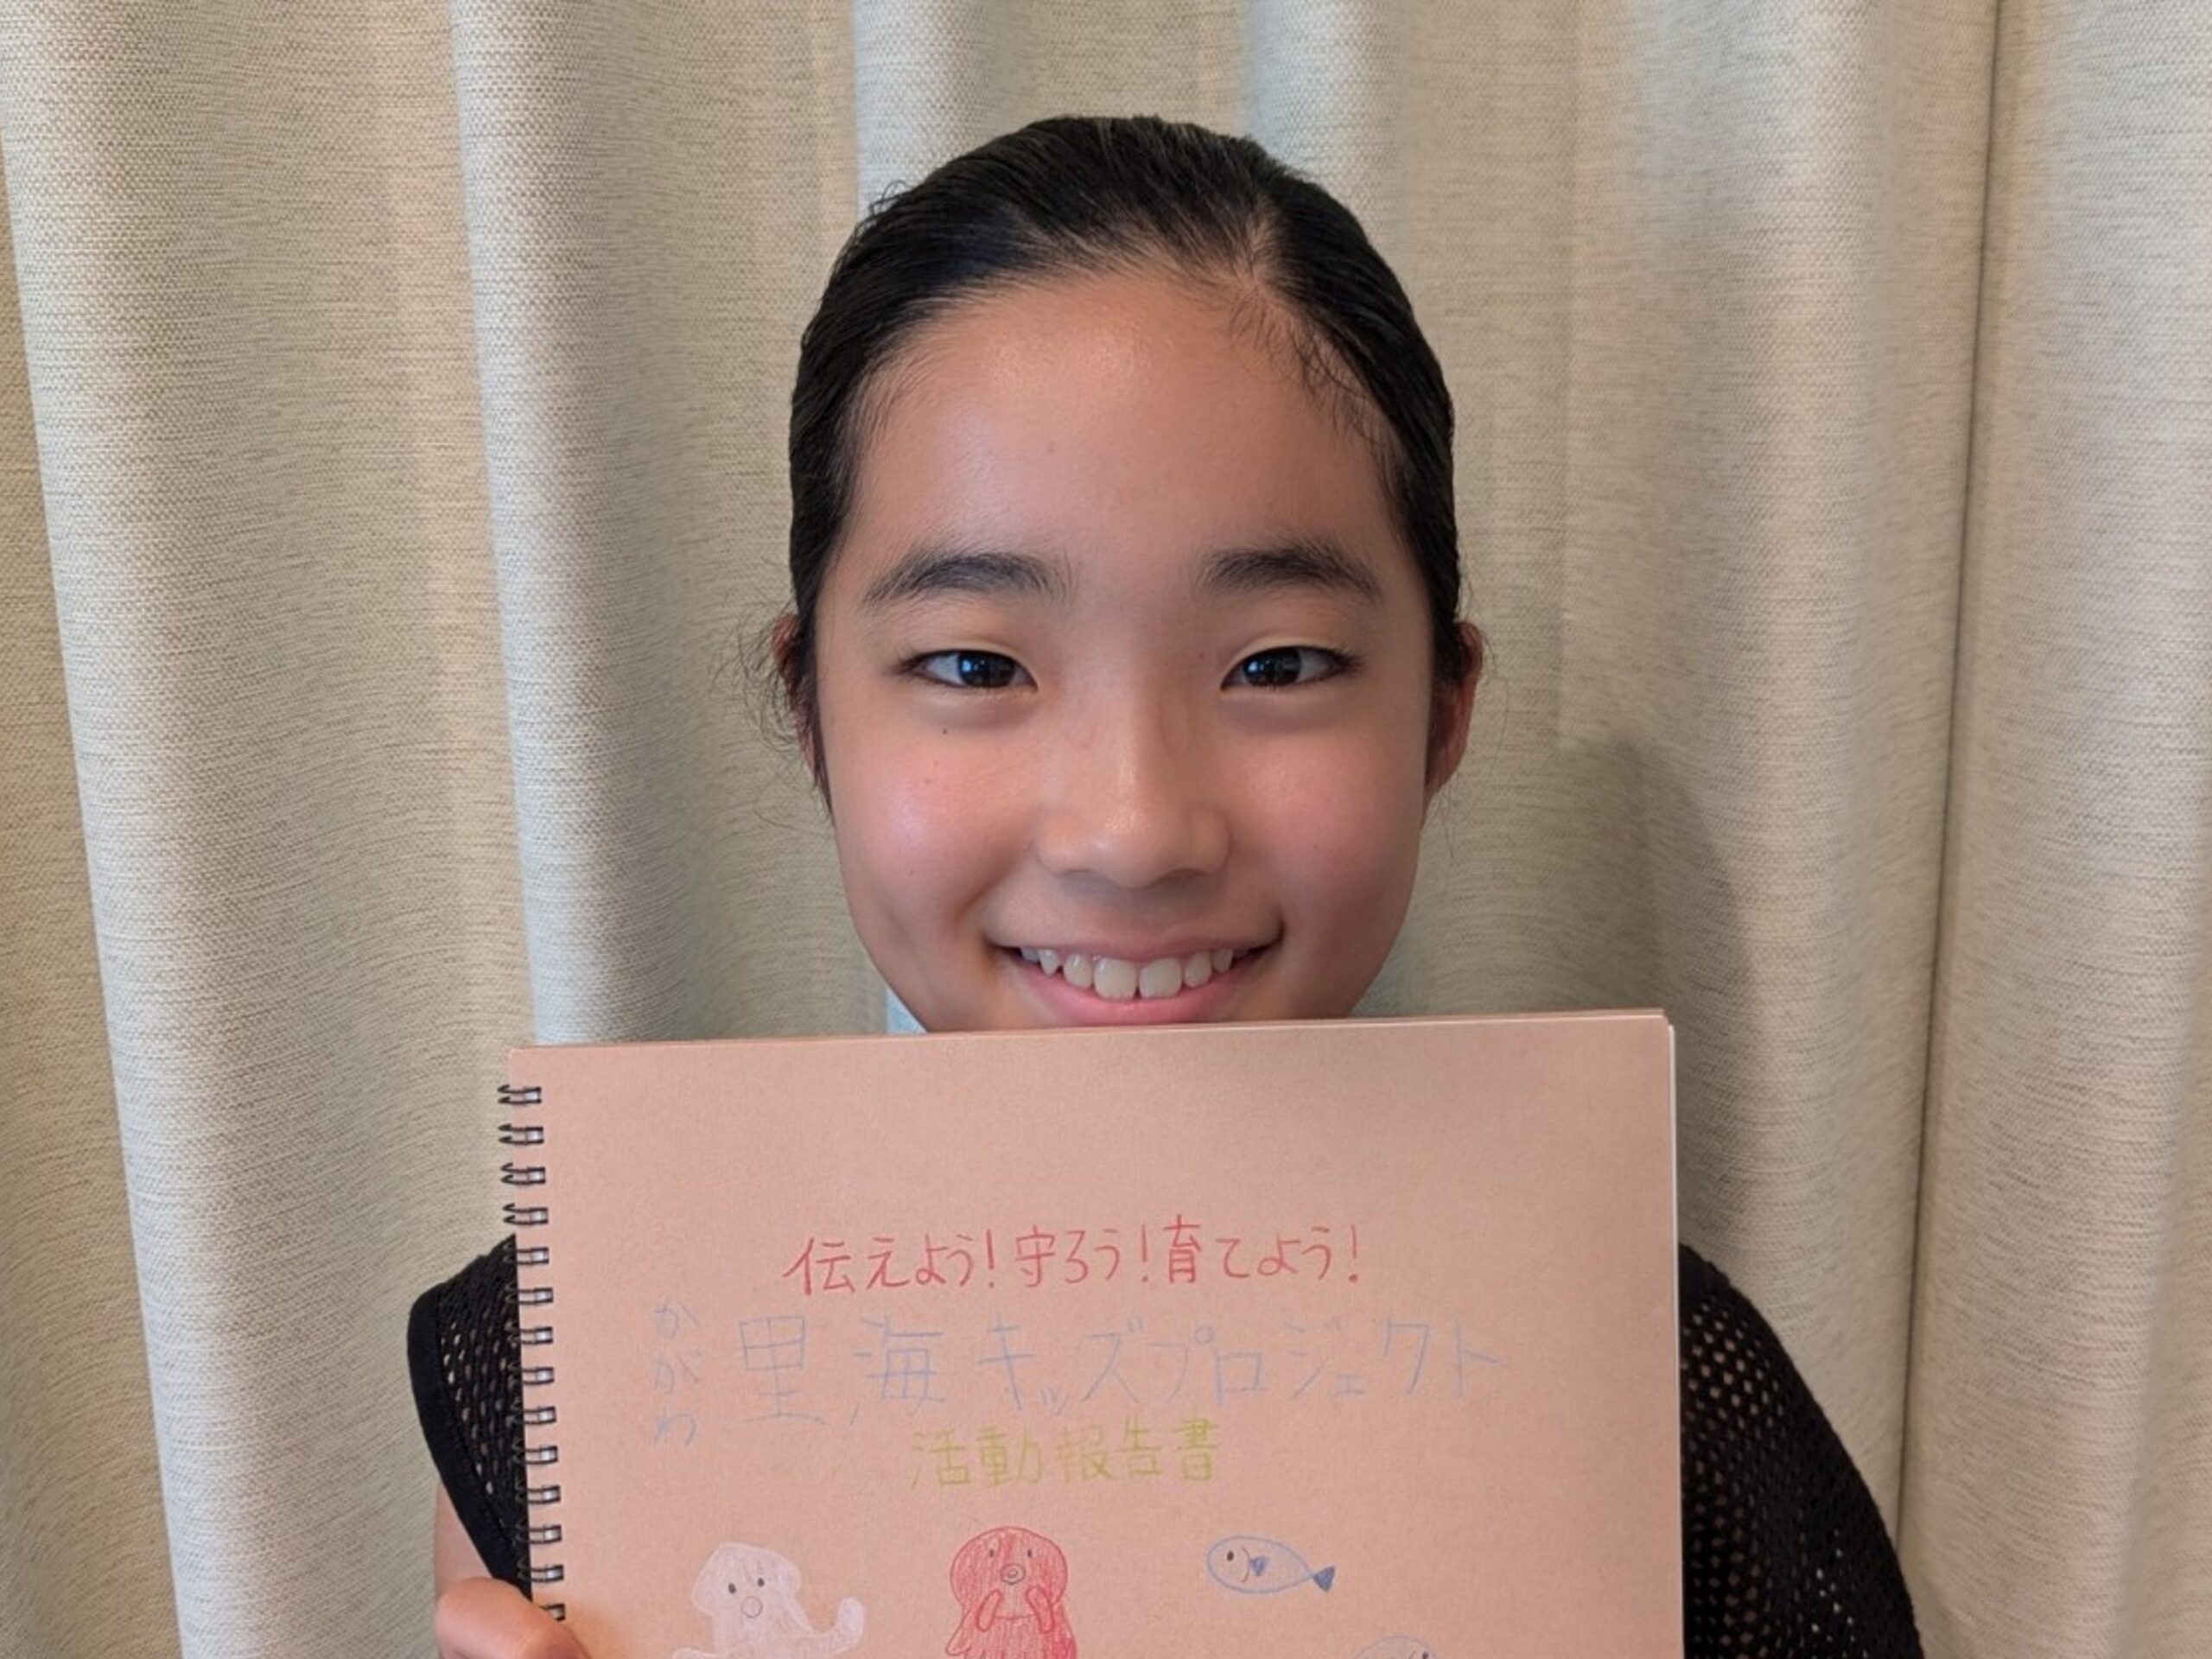 伝えよう!守ろう!育てよう!
かがわ里海キッズプロジェクト
活動報告書